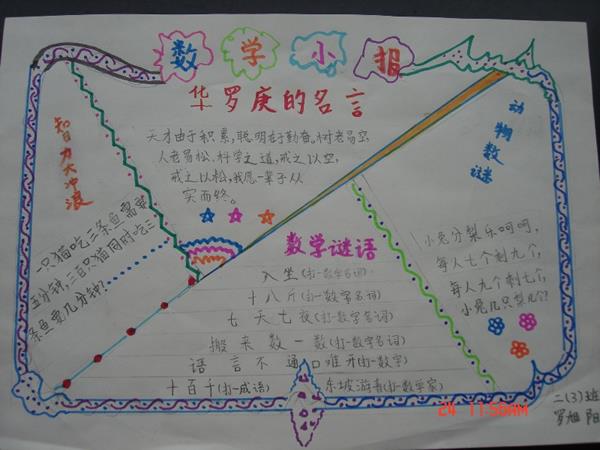 数学小报
华罗庚的名言
天才由于积累,聪明在于勤奋,树老易空,
人老易松,科学之道,戒之以空,
戒之以松,我愿一辈子从
实而终。
智力大冲浪
一只猫吃三条鱼需要
五分钟,三百只猫同时吃三
条鱼要几分钟?
动物数谜
小兔分梨乐呵呵,
每人七个剩九个,
每人九个剩七个,
小兔几只梨几个?
数学谜语
入坐(打一数学名词)
十八斤(打一数学名词)
七天七夜(打一数学名词)
搬来数一数(打一数学名词)
语言不通口难开(打一数字)
十百千(打一成语)
东坡游春(打一数学家)
二(3)班
罗旭阳
24 11:58AM